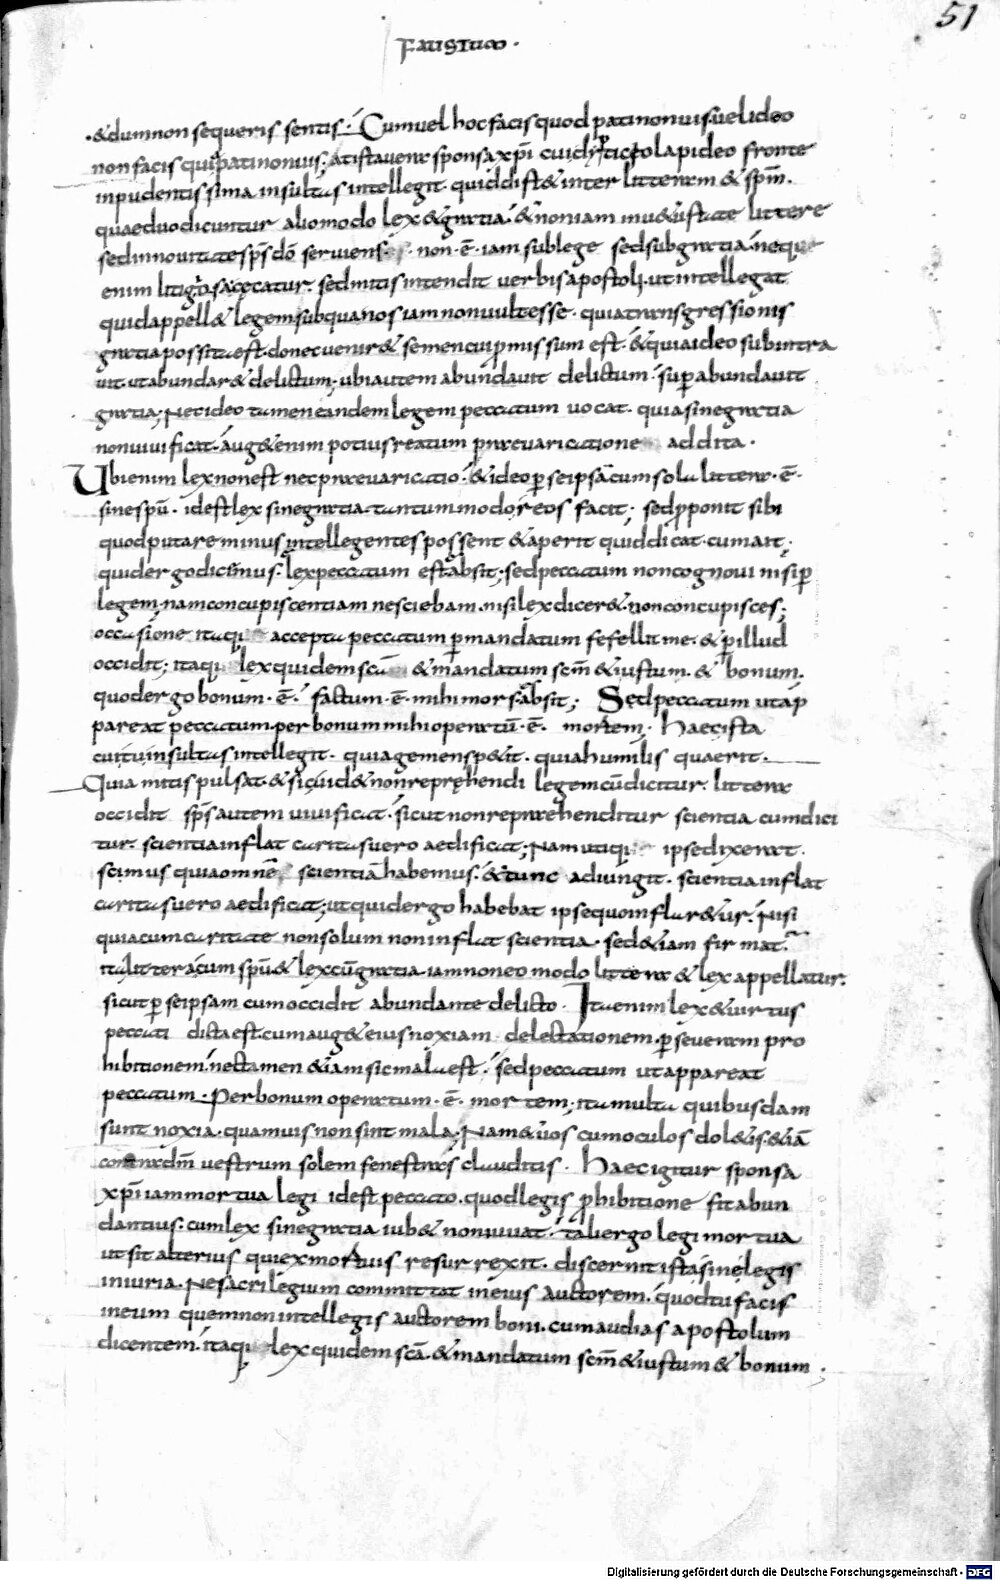 51
FAUSTUM ·
· & dum non sequeris sentis · Cum uel hoc facis quod pati non uis uel ideo
non facis qui pati non uis; at ista uera sponsa xpi cui duplicato lapideo fronte
inpudentissima insultas intellegit · quid dist& inter litteram & spm̄ ·
quae duo dicuntur alio modo lex & gratia · & non iam in u&ustate littere
sed in nouitate sp̄s dō seruiens · non · ē · iam sub lege sed sub gratia · neque
enim litigiosa cęcatur · sed mitis intendit uerbis apostoli · ut intellegat
quid appell& legem sub qua nos iam non uult esse · quia transgressionis
gratia posita est · donec uenir& semen cui p̄missum est · & quia ideo subintra
uit · ut abundar& delictum; ubi autem abundauit delictum · sup̄abundauit
gratia; Nec ideo tamen eandem legem peccatum uocat · quia sine gratia
non uiuificat · aug& enim potius reatum praeuaricatione addita ·
Ubi enim lex non est nec praeuaricatio · & ideo p̄ se ipsā cum sola littera · ē ·
sine spū · id est lex sine gratia · tantummodo reos facit; sed p̄ponit sibi
quod putare minus intellegentes possent & aperit quid dicat · cum ait;
quid ergo dicemus · lex peccatum est absit; sed peccatum non cognoui nisi p̄
legem; nam concupiscentiam nesciebam · nisi lex dicer& · non concupisces;
occasione itaq; accepta peccatum p̄ mandatum fefellit me · & p̄ illud
occidit; itaq; lex quidem scā & mandatum scm̄ & iustum · & bonum ·
quod ergo bonum · ē · factum · ē · mihi mors · absit; Sed peccatum ut ap
pareat peccatum · per bonum mihi operatū · ē · mortem · Haec ista
cui tu insultas intellegit · quia gemens p&it · quia humilis quaerit ·
Quia mitis pulsat · & sic uid& non reprehendi legem cū dicitur · littera
occidit sp̄s autem uiuificat · sicut non reprehenditur scientia cum dici
tur · scientia inflat caritas uero aedificat; Nam utiq; ipse dixerat ·
scimus quia omnēs scientiā habemus · & tunc adiungit · scientia inflat
caritas uero aedificat; ut quid ergo habebat ipse quo inflar&ur · Nisi
quia cum caritate non solum non inflat scientia · sed &iam firmat ·
ita littera cum spū & lex cū gratia · iam non eo modo littera & lex appellatur ·
sicut p̄ se ipsam cum occidit abundante delicto · Ita enim lex & uirtus
peccati dicta est · cum aug& eius noxiam delectationem · p̄ seueram pro
hibitionem · nec tamen &iam sic mala est · sed peccatum ut appareat
peccatum · Per bonum operatum · ē · mortem; ita multa quibusdam
sunt noxia · quamuis non sint mala; Nam & uos cum oculos dol&is · &iā
contra dm̄ uestrum solem fenestras clauditis · Haec igitur sponsa
xp̄i iam mortua legi id est peccato · quod legis p̄hibitione fit abun
dantius · cum lex sine gratia iub& non iuuat · tali ergo legi mortua
ut sit alterius qui ex mortuis resurrexit · discernit ista sine legis
iniuria · Ne sacrilegium committat in eius auctorem · quod tu facis
in eum quem non intellegis auctorem boni · cum audias apostolum
dicentem · itaq; lex quidem scā · & mandatum scm̄ & iustum & bonum ·
Digitalisierung gefördert durch die Deutsche Forschungsgemeinschaft - DFG